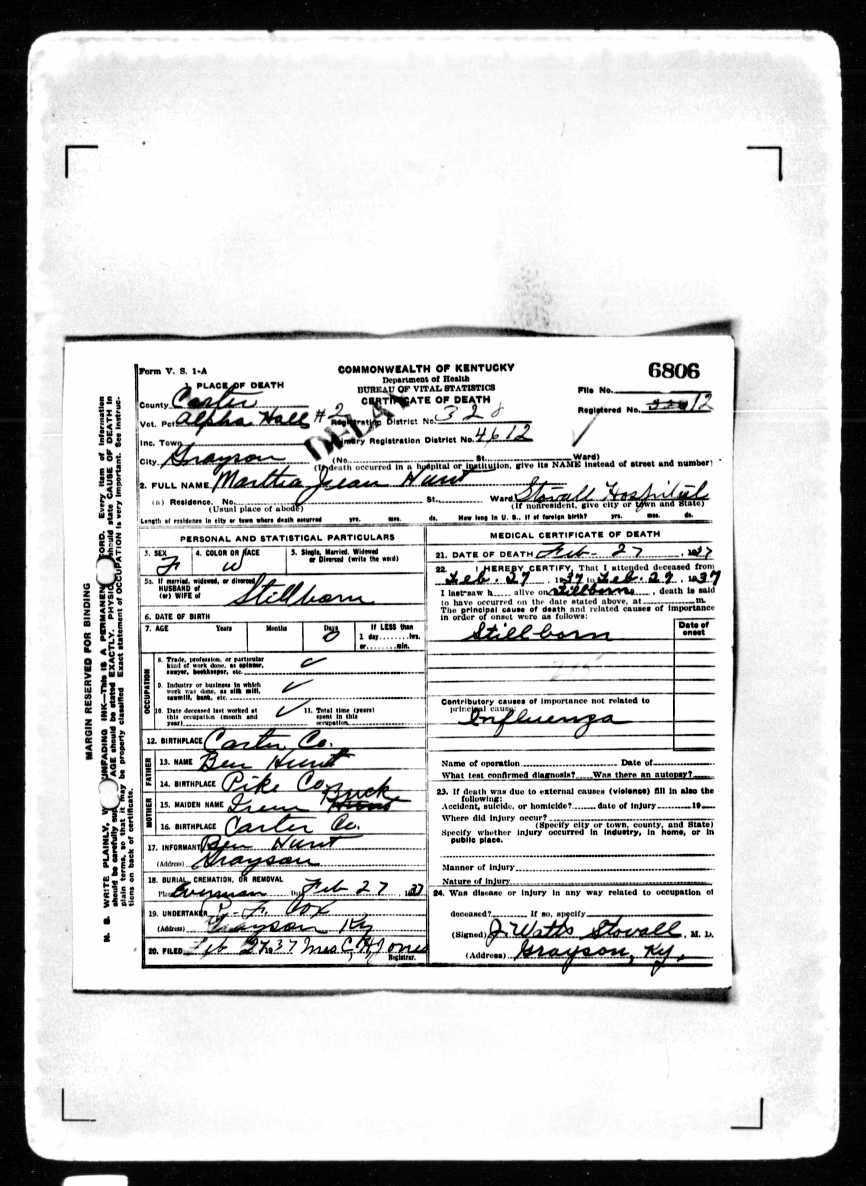 Form V. S. 1-A
COMMONWEALTH OF KENTUCKY
Department of Health
BUREAU OF VITAL STATISTICS
CERTIFICATE OF DEATH
6806
File No.
Registered No. 12
1. PLACE OF DEATH
County Carter
Vot. Pct. Alpha Hall #2
Registration District No. 328
DELAY
Inc. Town
Primary Registration District No. 4612
City Grayson
(No. St. Ward)
(If death occurred in a hospital or institution, give its NAME instead of street and number)
2. FULL NAME Martha Jean Hunt
(a) Residence, No. St. Ward Stovall Hospital
(Usual place of abode) (If nonresident, give city or town and State)
Length of residence in city or town where death occurred yrs. mos. ds. How long in U. S., if of foreign birth? yrs. mos. ds.
PERSONAL AND STATISTICAL PARTICULARS
3. SEX F
4. COLOR OR RACE W
5. Single, Married, Widowed or Divorced (write the word)
5a. If married, widowed, or divorced
HUSBAND of
(or) WIFE of
Stillborn
6. DATE OF BIRTH
7. AGE Years Months Days 0 If LESS than
1 day hrs.
or min.
OCCUPATION
8. Trade, profession, or particular
kind of work done, as spinner,
sawyer, bookkeeper, etc.
9. Industry or business in which
work was done, as silk mill,
sawmill, bank, etc.
10. Date deceased last worked at
this occupation (month and
year)
11. Total time (years)
spent in this
occupation
12. BIRTHPLACE Carter Co.
FATHER
13. NAME Ben Hunt
14. BIRTHPLACE Pike Co
MOTHER
15. MAIDEN NAME Irene Buck
16. BIRTHPLACE Carter Co.
17. INFORMANT Ben Hunt
(Address) Grayson
18. BURIAL, CREMATION, OR REMOVAL
Place Date Feb 27, 1937
19. UNDERTAKER Cox
(Address) Grayson Ky
20. FILED Feb 27 1937 Mrs C. H. Jones
Registrar.
MEDICAL CERTIFICATE OF DEATH
21. DATE OF DEATH Feb- 27, 1937
22. I HEREBY CERTIFY, That I attended deceased from
Feb. 27, 1937 to Feb. 27, 1937
I last saw h alive on stillborn, death is said
to have occurred on the date stated above, at m.
The principal cause of death and related causes of importance
in order of onset were as follows:
Date of onset
Stillborn
Contributory causes of importance not related to
principal cause:
Influenza
Name of operation Date of
What test confirmed diagnosis? Was there an autopsy?
23. If death was due to external causes (violence) fill in also the
following:
Accident, suicide, or homicide? date of injury 19
Where did injury occur?
(Specify city or town, county, and State)
Specify whether injury occurred in industry, in home, or in
public place.
Manner of injury
Nature of injury
24. Was disease or injury in any way related to occupation of
deceased? If so, specify
(Signed) J. Watts Stovall, M. D.
(Address) Grayson, Ky.
MARGIN RESERVED FOR BINDING
N. B. WRITE PLAINLY, UNFADING INK—This is A PERMANENT RECORD. Every item of information
should be carefully AGE should be stated EXACTLY. PHYSICIANS should state CAUSE OF DEATH in
plain terms, so that it may be properly classified. Exact statement of OCCUPATION is very important. See instruc-
tions on back of certificate.